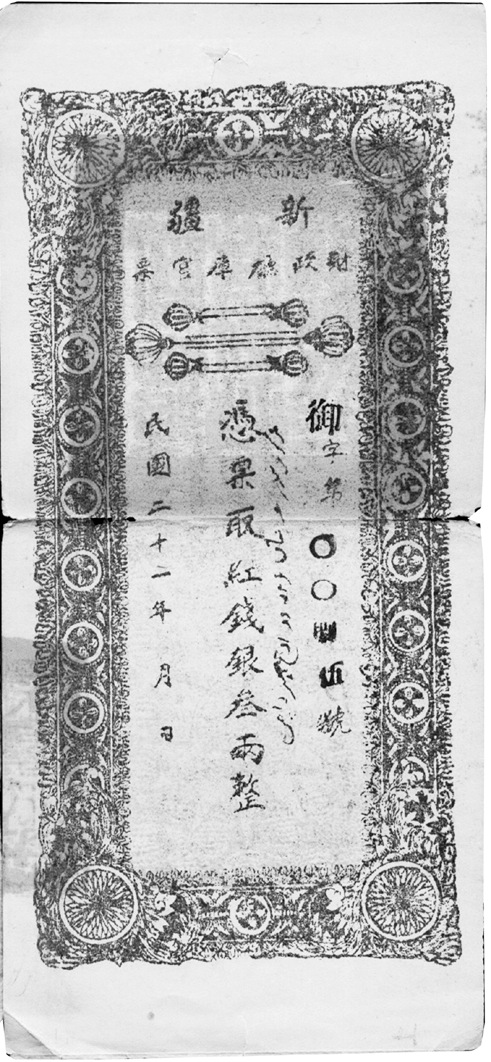 新疆
財政廳庫官票
御字第〇〇四伍號
憑票取紅錢銀叁兩整
民國二十二年 月 日